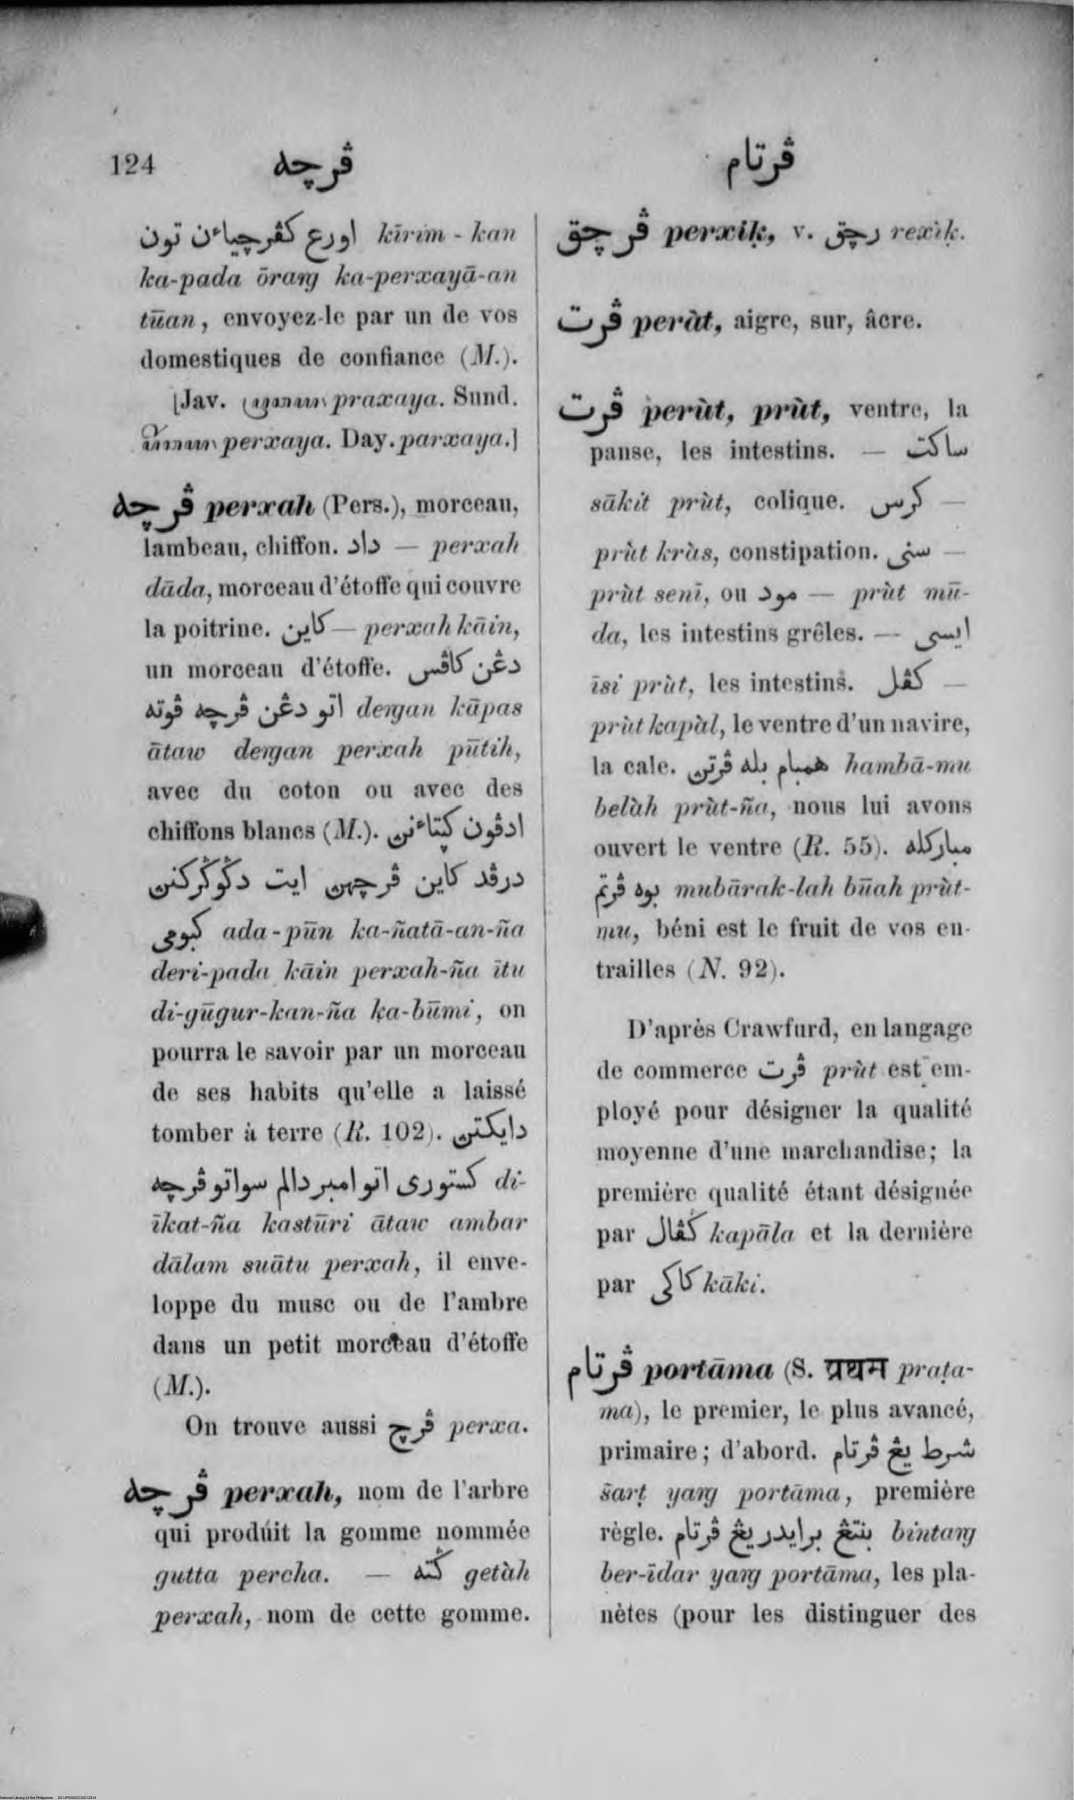 124 ڤرچه ڤرتام
اورع كڤرچياءن تون kīrim-kan
ka-pada ōraŋ ka-perxayā-an
tūan, envoyez-le par un de vos
domestiques de confiance (M.).
[Jav. praxaya. Sund.
perxaya. Day. parxaya.]
ڤرچه perxah (Pers.), morceau,
lambeau, chiffon. داد — perxah
dāda, morceau d'étoffe qui couvre
la poitrine. كاين — perxah kāin,
un morceau d'étoffe. دڠن كاڤس
اتو دڠن ڤرچه ڤوته deŋan kāpas
ātaw deŋan perxah pūtih,
avec du coton ou avec des
chiffons blancs (M.). ادڤون كڽتاءنڽ
درڤد كاين ڤرچهڽ ايت دݢوݢركنڽ
كبومي ada-pūn ka-ñatā-an-ña
deri-pada kāin perxah-ña ītu
di-gūgur-kan-ña ka-būmi, on
pourra le savoir par un morceau
de ses habits qu'elle a laissé
tomber à terre (R. 102). دايكتڽ
كستوري اتو امبر دالم سواتو ڤرچه di-
īkat-ña kastūri ātaw ambar
dālam suātu perxah, il enve-
loppe du musc ou de l'ambre
dans un petit morceau d'étoffe
(M.).
On trouve aussi ڤرچ perxa.
ڤرچه perxah, nom de l'arbre
qui produit la gomme nommée
gutta percha. — ݢته getàh
perxah, nom de cette gomme.
ڤرچق perxiḳ, v. رچق rexiḳ.
ڤرت peràt, aigre, sur, âcre.
ڤرت perùt, prùt, ventre, la
panse, les intestins. — ساكت
sākit prùt, colique. كرس —
prùt kràs, constipation. سني —
prùt senī, ou مود — prùt mū-
da, les intestins grêles. — ايسي
īsi prùt, les intestins. كڤل —
prùt kapàl, le ventre d'un navire,
la cale. همبام بله ڤرتڽ hambā-mu
belàh prùt-ña, nous lui avons
ouvert le ventre (R. 55). مباركله
بوه ڤرتم mubārak-lah būah prùt-
mu, béni est le fruit de vos en-
trailles (N. 92).
D'après Crawfurd, en langage
de commerce ڤرت prùt est em-
ployé pour désigner la qualité
moyenne d'une marchandise; la
première qualité étant désignée
par كڤال kapāla et la dernière
par كاكي kāki.
ڤرتام portāma (S. प्रथम praṭa-
ma), le premier, le plus avancé,
primaire; d'abord. شرط يڠ ڤرتام
šarṭ yaŋ portāma, première
règle. بنتڠ برايدر يڠ ڤرتام bintaŋ
ber-īdar yaŋ portāma, les pla-
nètes (pour les distinguer des